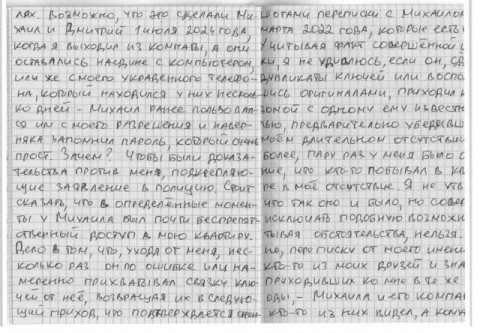 лях. Возможно, что это сделали Ми-
хаил и Дмитрий 1 июля 2024 года,
когда я выходил из комнаты, а они
оставались наедине с компьютером,
или же с моего украденного телефо-
на, который находился у них несколь-
ко дней - Михаил ранее пользовал-
ся им с моего разрешения и навер-
няка запомнил пароль, который очень
прост. Зачем? Чтобы были доказа-
тельства против меня, подкрепляю-
щие заявление в полицию. Стоит
сказать, что в определённые момен-
ты у Михаила был почти беспрепят-
ственный доступ в мою квартиру.
Дело в том, что, уходя от меня, нес-
колько раз он по ошибке или на-
меренно прихватывал связку клю-
чей от неё, возвращая их в следую-
щий приход, что подтверждается
шотами переписки с Михаилом
марта 2022 года, которые есть
Учитывая факт совершённой
ки, я не удивлюсь, если он,
дубликаты ключей или воспо
ись оригиналами, приходил
с одному ему известн
ью, предварительно убедивш
моём длительном отсутствии
более, пару раз у меня было
ние, что кто-то побывал в кв
ре в моё отсутствие. Я не утв
что так оно и было, но совер
исключать подобную возможн
тывая обстоятельства, нельзя.
но, переписку от моего имени
кто-то из моих друзей и зна
приходивших ко мне в те же
оды, - Михаил и его компан
кто-то из них видел, а